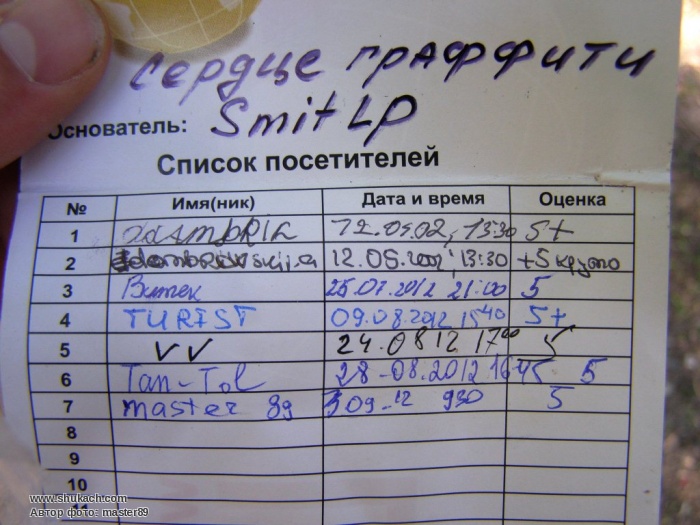 Сердце граффити
Основатель: Smit LP
Список посетителей
№ Имя(ник) Дата и время Оценка
1 5+
2 13:30 +5 круто
3 Витек 25.07.2012 21:00 5
4 TURIST 09.08.2012 15 40 5+
5 VV 24.08 12 17 00 5
6 Tan-Tol 28-08.2012 16 45 5
7 master 89 09-12 930 5
8
9
10
11
www.shukach.com
Автор фото: master89